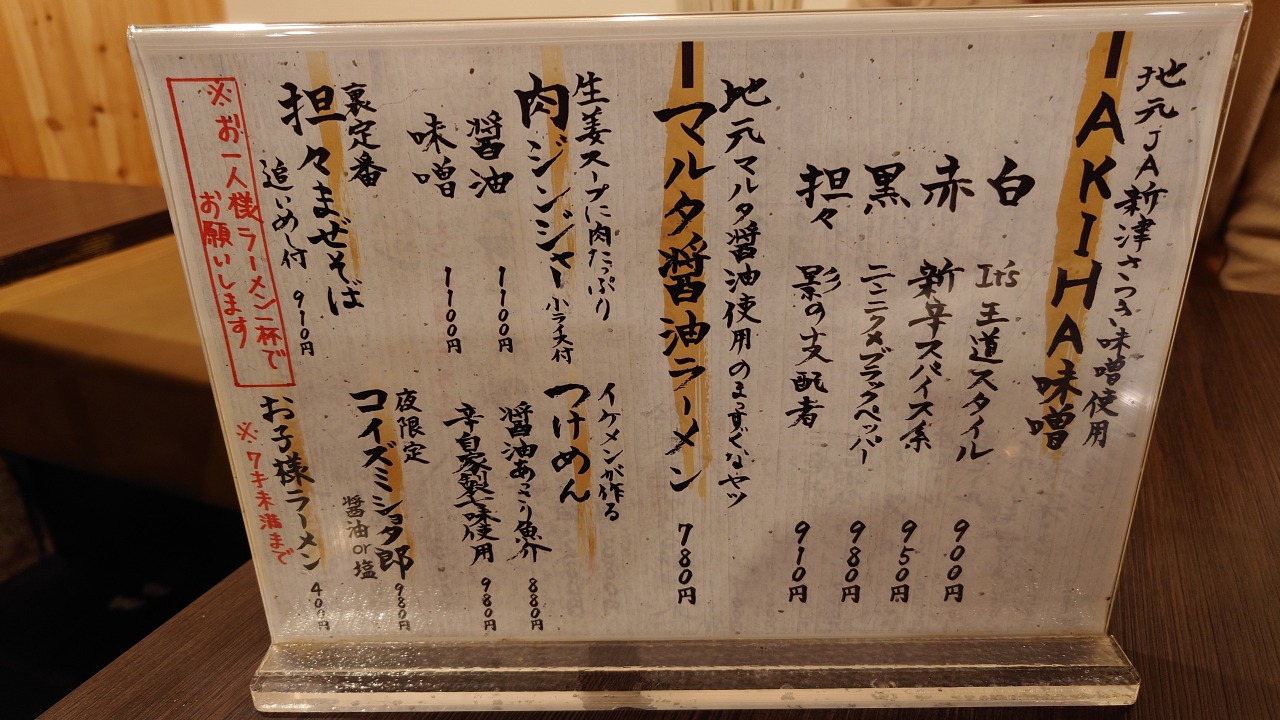 地元JA新津さつき味噌使用
AKIHA味噌
白 It's 王道スタイル 900円
赤 新辛スパイス系 950円
黒 ニンニク×ブラックペッパー 980円
担々 影の支配者 910円
地元マルタ醤油使用のまっすぐなヤツ
マルタ醤油ラーメン 780円
生姜スープに肉たっぷり
肉ジンジャー 小ライス付
醤油 1100円
味噌 1100円
イケメンが作る
つけめん
醤油あさり魚介 880円
辛自家製七味使用 980円
裏定番
担々まぜそば
追いめし付 910円
夜限定
コイズミショタ郎
醤油or塩 980円
お子様ラーメン 400円
※7才未満まで
※お一人様ラーメン一杯で
お願いします